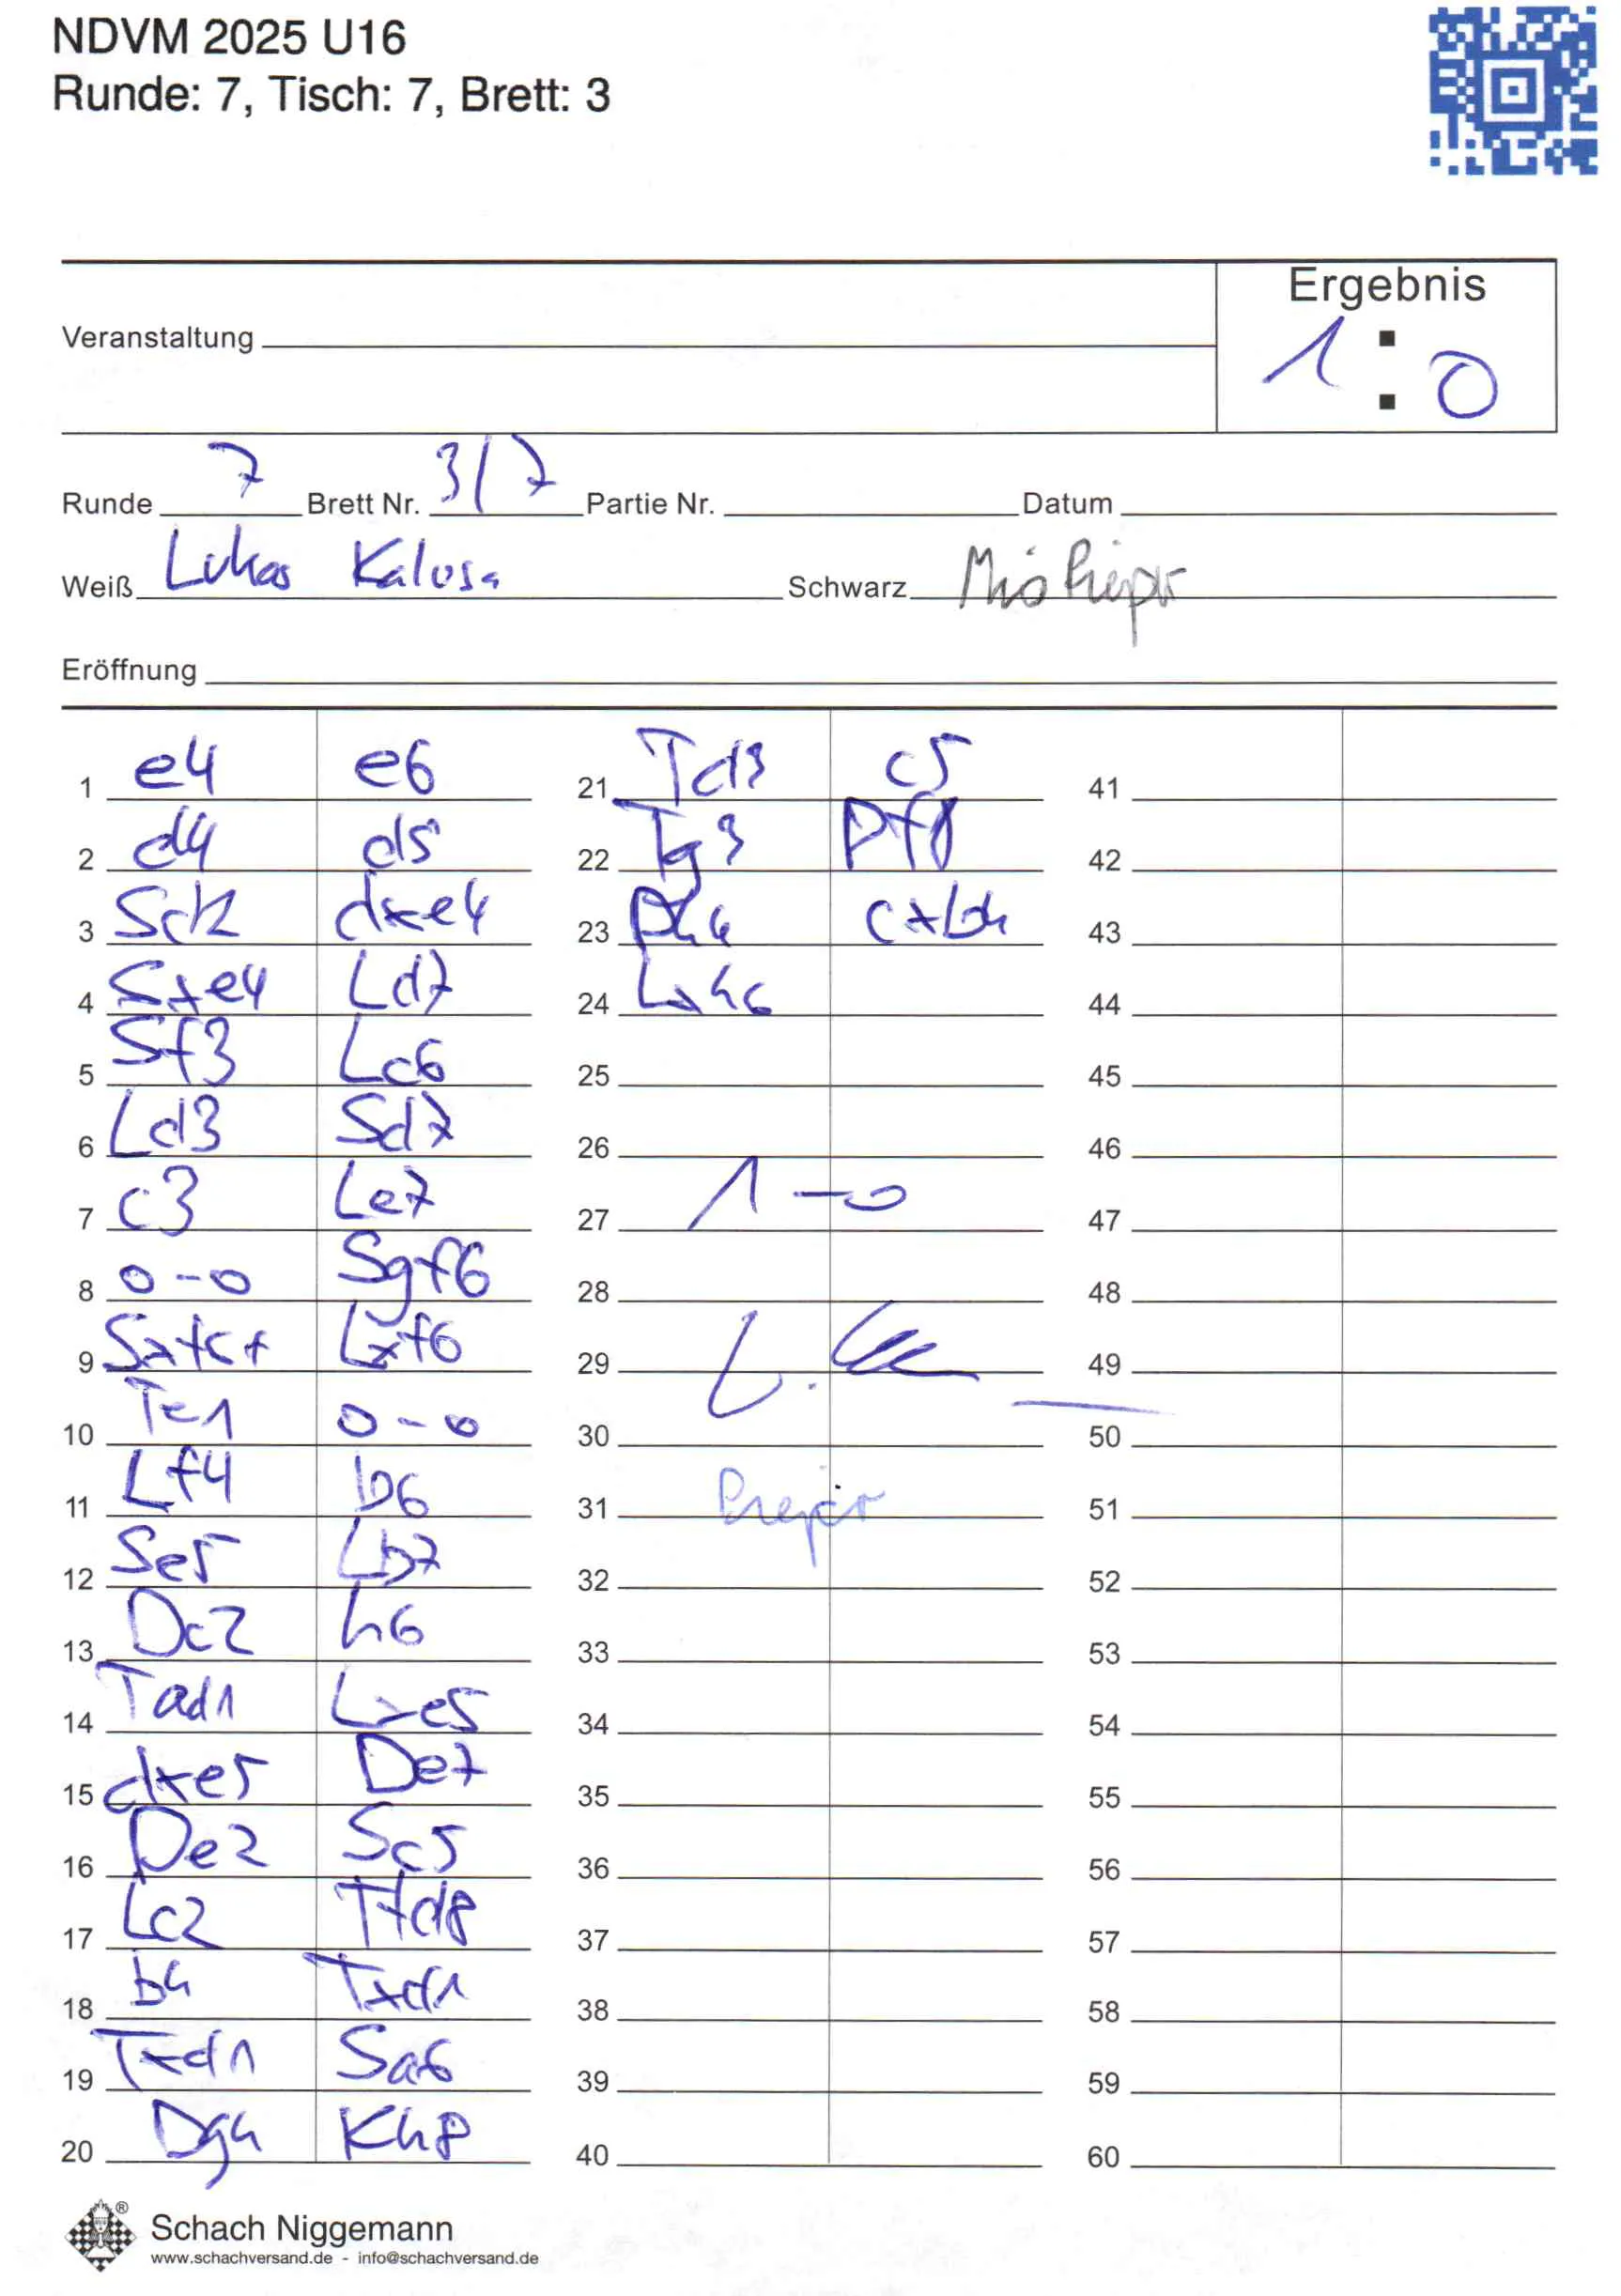 NDVM 2025 U16
Runde: 7, Tisch: 7, Brett: 3
Ergebnis
1 : 0
Veranstaltung
Runde 7 Brett Nr. 3/7 Partie Nr. Datum
Weiß Lukas Kalusa Schwarz
Eröffnung
1 e4 e6 21 Td3 c5 41
2 d4 d5 22 Tg3 Df8 42
3 Sd2 dxe4 23 Dh4 cxb4 43
4 Sxe4 Ld7 24 Lxh6 44
5 Sf3 Lc6 25 45
6 Ld3 Sd7 26 46
7 c3 Le7 27 1-0 47
8 0-0 Sgf6 28 48
9 Sxf6+ Lxf6 29 49
10 Te1 0-0 30 50
11 Lf4 b6 31 51
12 Se5 Lb7 32 52
13 Dc2 h6 33 53
14 Tad1 Lxe5 34 54
15 dxe5 De7 35 55
16 De2 Sc5 36 56
17 Lc2 Tfd8 37 57
18 b4 Txd1 38 58
19 Txd1 Sa6 39 59
20 Dg4 Kh8 40 60
®
Schach Niggemann
www.schachversand.de - info@schachversand.de